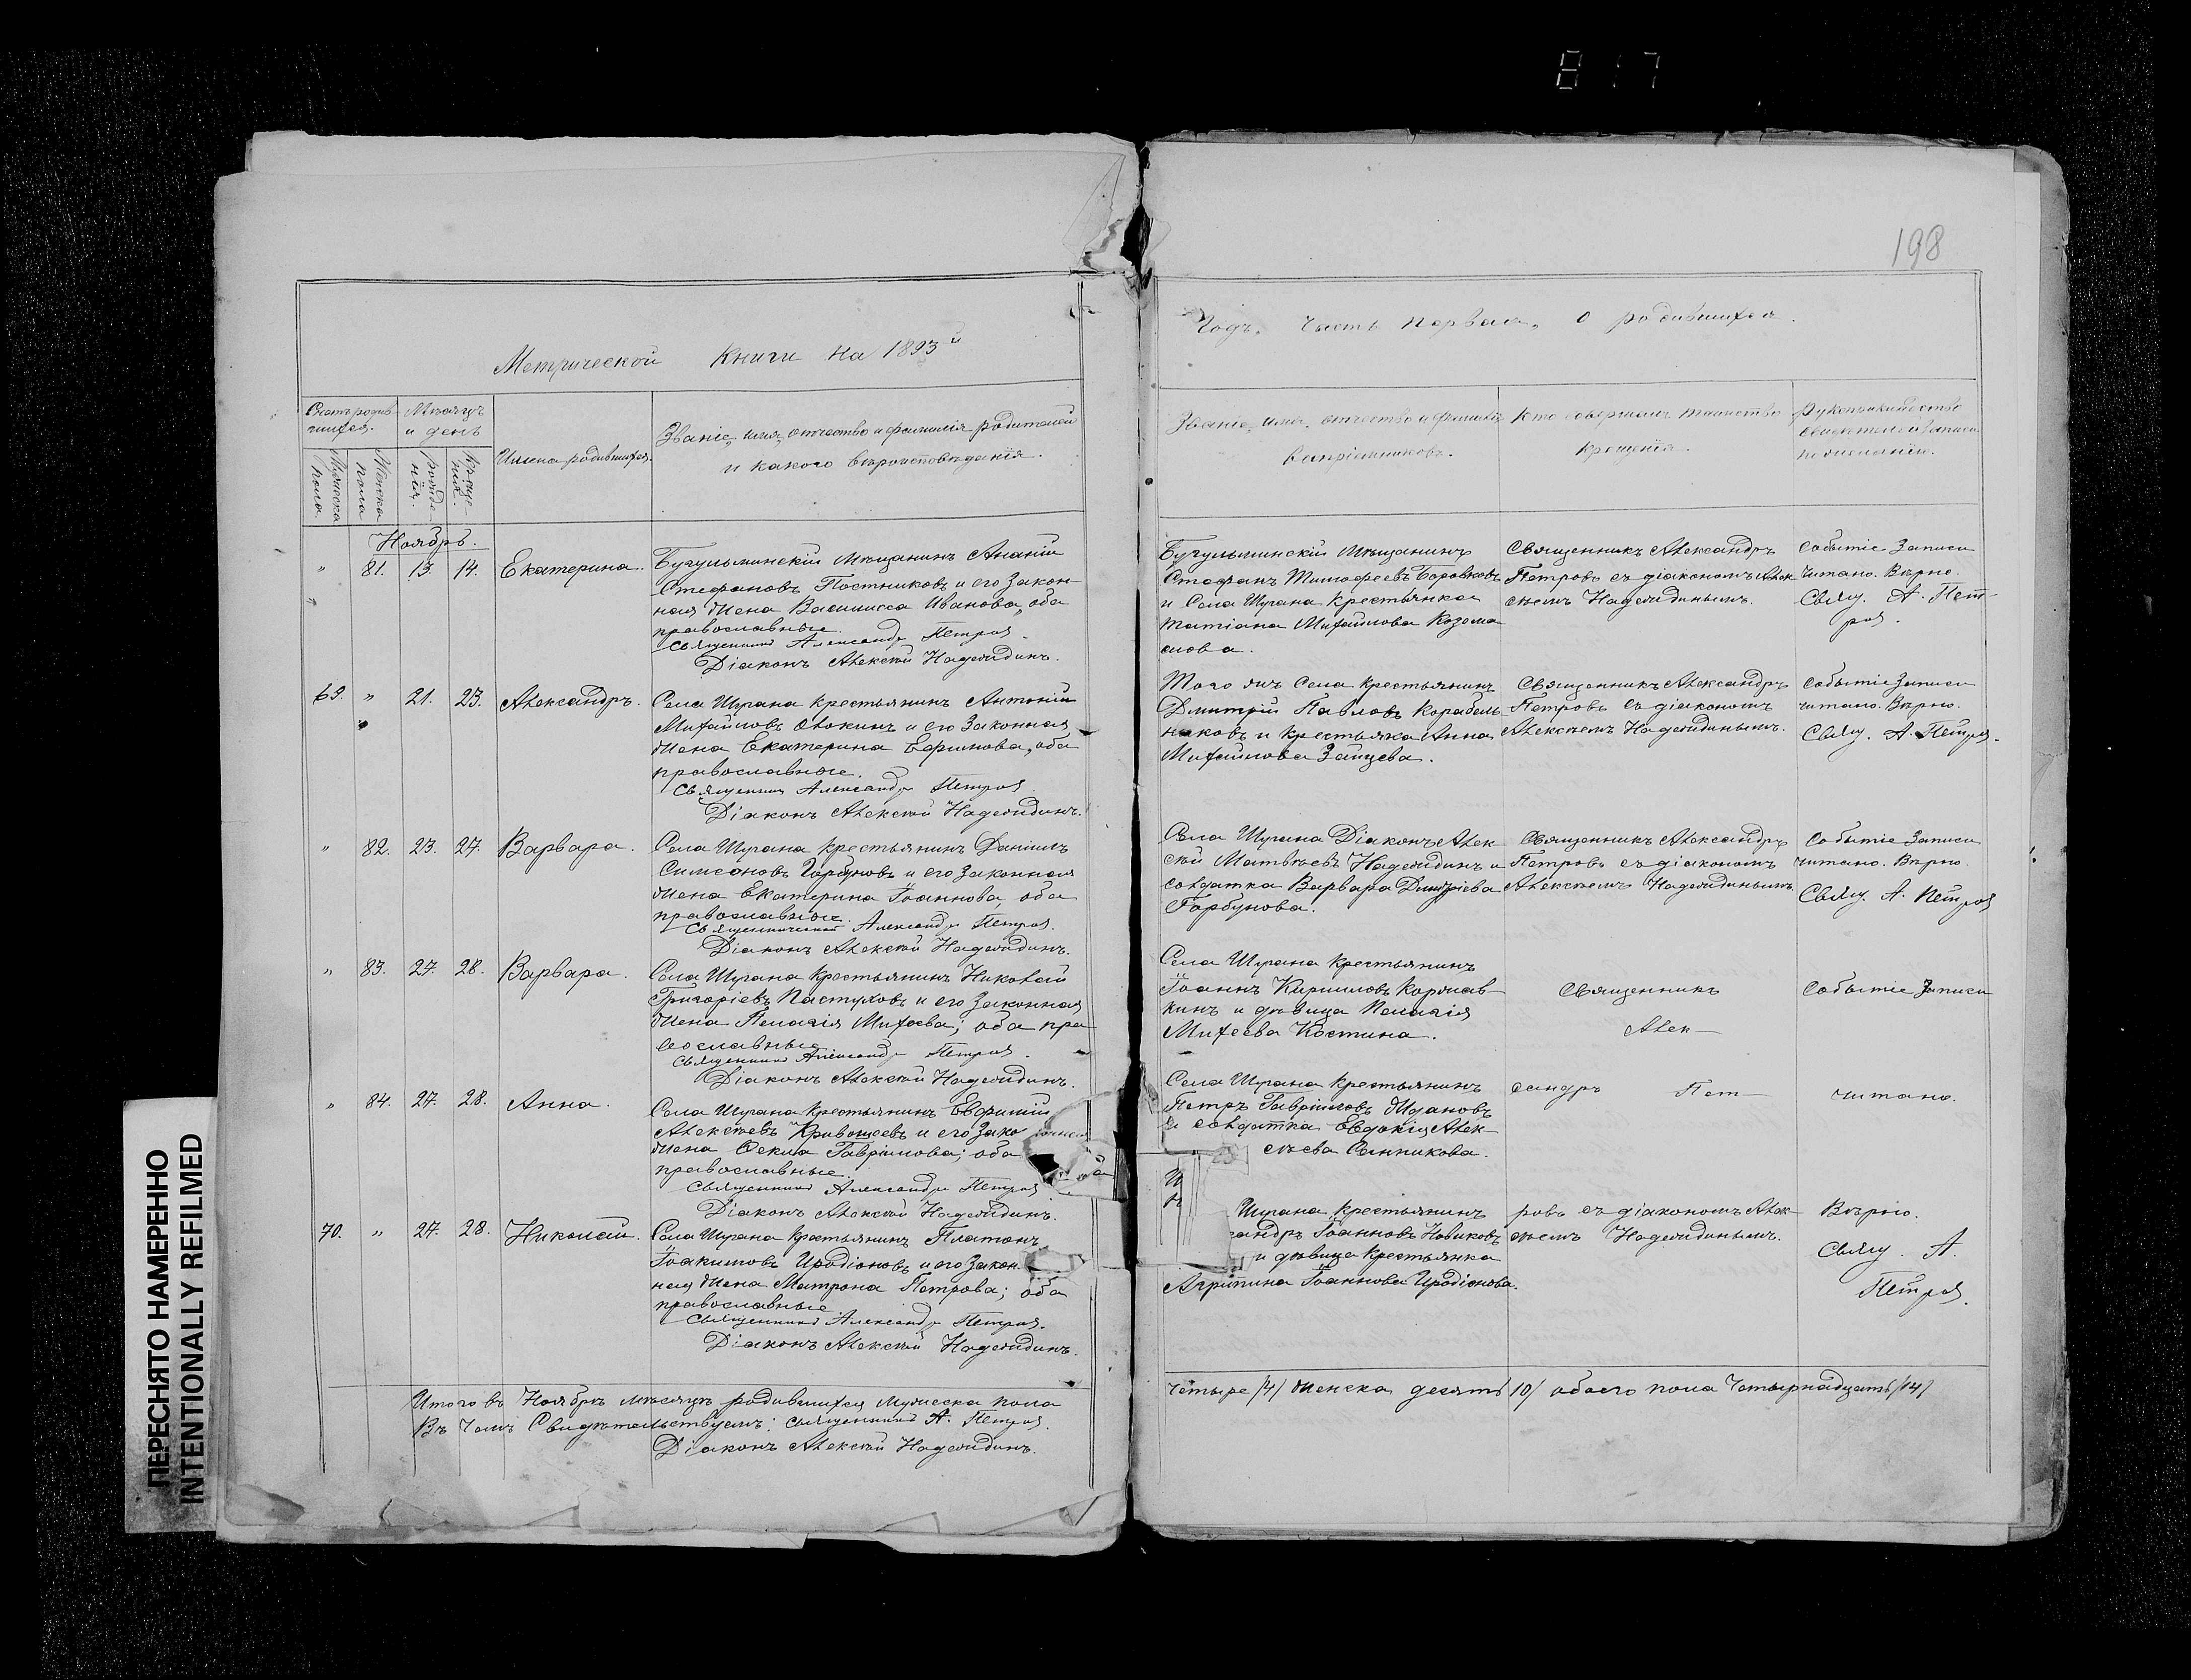 817
198
Метрической Книги на 1893й
Годъ. Часть первая, о родившихся.
Счетъ родив-
шихся.
Мѣсяцъ
и день
Мужеска
пола
Женска
пола
рожде-
нія.
креще-
нія.
Имена родившихся.
Званіе, имя, отчество и фамилія родителей
и какого вѣроисповѣданія.
Званіе, имя, отчество и фамилія
воспріемниковъ.
Кто совершалъ таинство
крещенія.
Рукоприкладство
свидѣтелей записи
по желанію.
Ноябрь.
" 81. 13. 14. Екатерина.
Бугульминскій мѣщанинъ Ананій
Стефановъ Постниковъ и его закон-
ная жена Василисса Иванова, оба
православные.
Священникъ Александръ Петровъ.
Діаконъ Алексѣй Надеждинъ.
Бугульминскій мѣщанинъ
Стефанъ Тимофеевъ Боровковъ
и Села Шугана крестьянка
Татіана Михайлова Козома
слова.
Священникъ Александръ
Петровъ съ діакономъ Алек-
сѣемъ Надеждинымъ.
Событіе Записи
читано. Вѣрно.
Свящ. А. Пет-
ровъ.
69. " 21. 23. Александръ.
Села Шугана крестьянинъ Антоній
Михайловъ Алокинъ и его законная
жена Екатерина Ефимова, оба
православные.
Священникъ Александръ Петровъ
Діаконъ Алексѣй Надеждинъ.
Того жъ Села крестьянинъ
Дмитрій Павловъ Корабель-
никовъ и крестьяка Анна
Михайлова Зайцева.
Священникъ Александръ
Петровъ съ діакономъ
Алексѣемъ Надеждинымъ.
Событіе Записи
читано. Вѣрно.
Свящ. А. Петровъ.
" 82. 23. 24. Варвара.
Села Шугана крестьянинъ Даніилъ
Симеоновъ Горбуновъ и его законная
жена Екатерина Іоаннова, оба
православные.
Священникъ Александръ Петровъ.
Діаконъ Алексѣй Надеждинъ.
Села Шугана Діаконъ Алек
сѣй Матвѣевъ Надеждинъ и
солдатка Варвара Димитріева
Горбунова.
Священникъ Александръ
Петровъ съ діакономъ
Алексѣемъ Надеждинымъ.
Событіе Записи
читано. Вѣрно.
Свящ. А. Петровъ
" 83. 27. 28. Варвара.
Села Шугана крестьянинъ Николай
Григоріевъ Пастуховъ и его законная
жена Пелагія Михеева; оба пра
вославные
Священникъ Александръ Петровъ.
Діаконъ Алексѣй Надеждинъ.
Села Шугана крестьянинъ
Іоаннъ Кирилловъ Коржав-
кинъ и дѣвица Пелагія
Михеева Костина.
Священникъ
Алек-
Событіе Записи
" 84. 27. 28. Анна.
Села Шугана крестьянинъ Евфимій
Алексѣевъ Кривошеевъ и его зако
жена Фекла Гавріилова; оба
православные.
Священникъ Александръ Петровъ
Діаконъ Алексѣй Надеждинъ.
Села Шугана крестьянинъ
Петръ Гавріиловъ Ждановъ
и солдатка Евдокія Алек-
сѣева Санникова.
сандръ Пет-
читано.
70. " 27. 28. Николай.
Села Шугана крестьянинъ Платонъ
Іоакимовъ Иродіоновъ и его закон
ная жена Матрона Петрова; оба
православные
Священникъ Александръ Петровъ.
Діаконъ Алексѣй Надеждинъ.
Шугана крестьянинъ
андръ Іоанновъ Новиковъ
и дѣвица крестьянка
Агрипина Іоаннова Иродіонова.
ровъ съ діакономъ Алек-
сѣемъ Надеждинымъ.
Вѣрно.
Свящ. А.
Петровъ.
Итого въ Ноябрѣ мѣсяцѣ родившихся мужеска пола
четыре /4/ женска десять /10/ обоего пола четырнадцать /14/
Въ чемъ Свидѣтельствуемъ: Священникъ А. Петровъ.
Діаконъ Алексѣй Надеждинъ.
ПЕРЕСНЯТО НАМЕРЕННО
INTENTIONALLY REFILMED